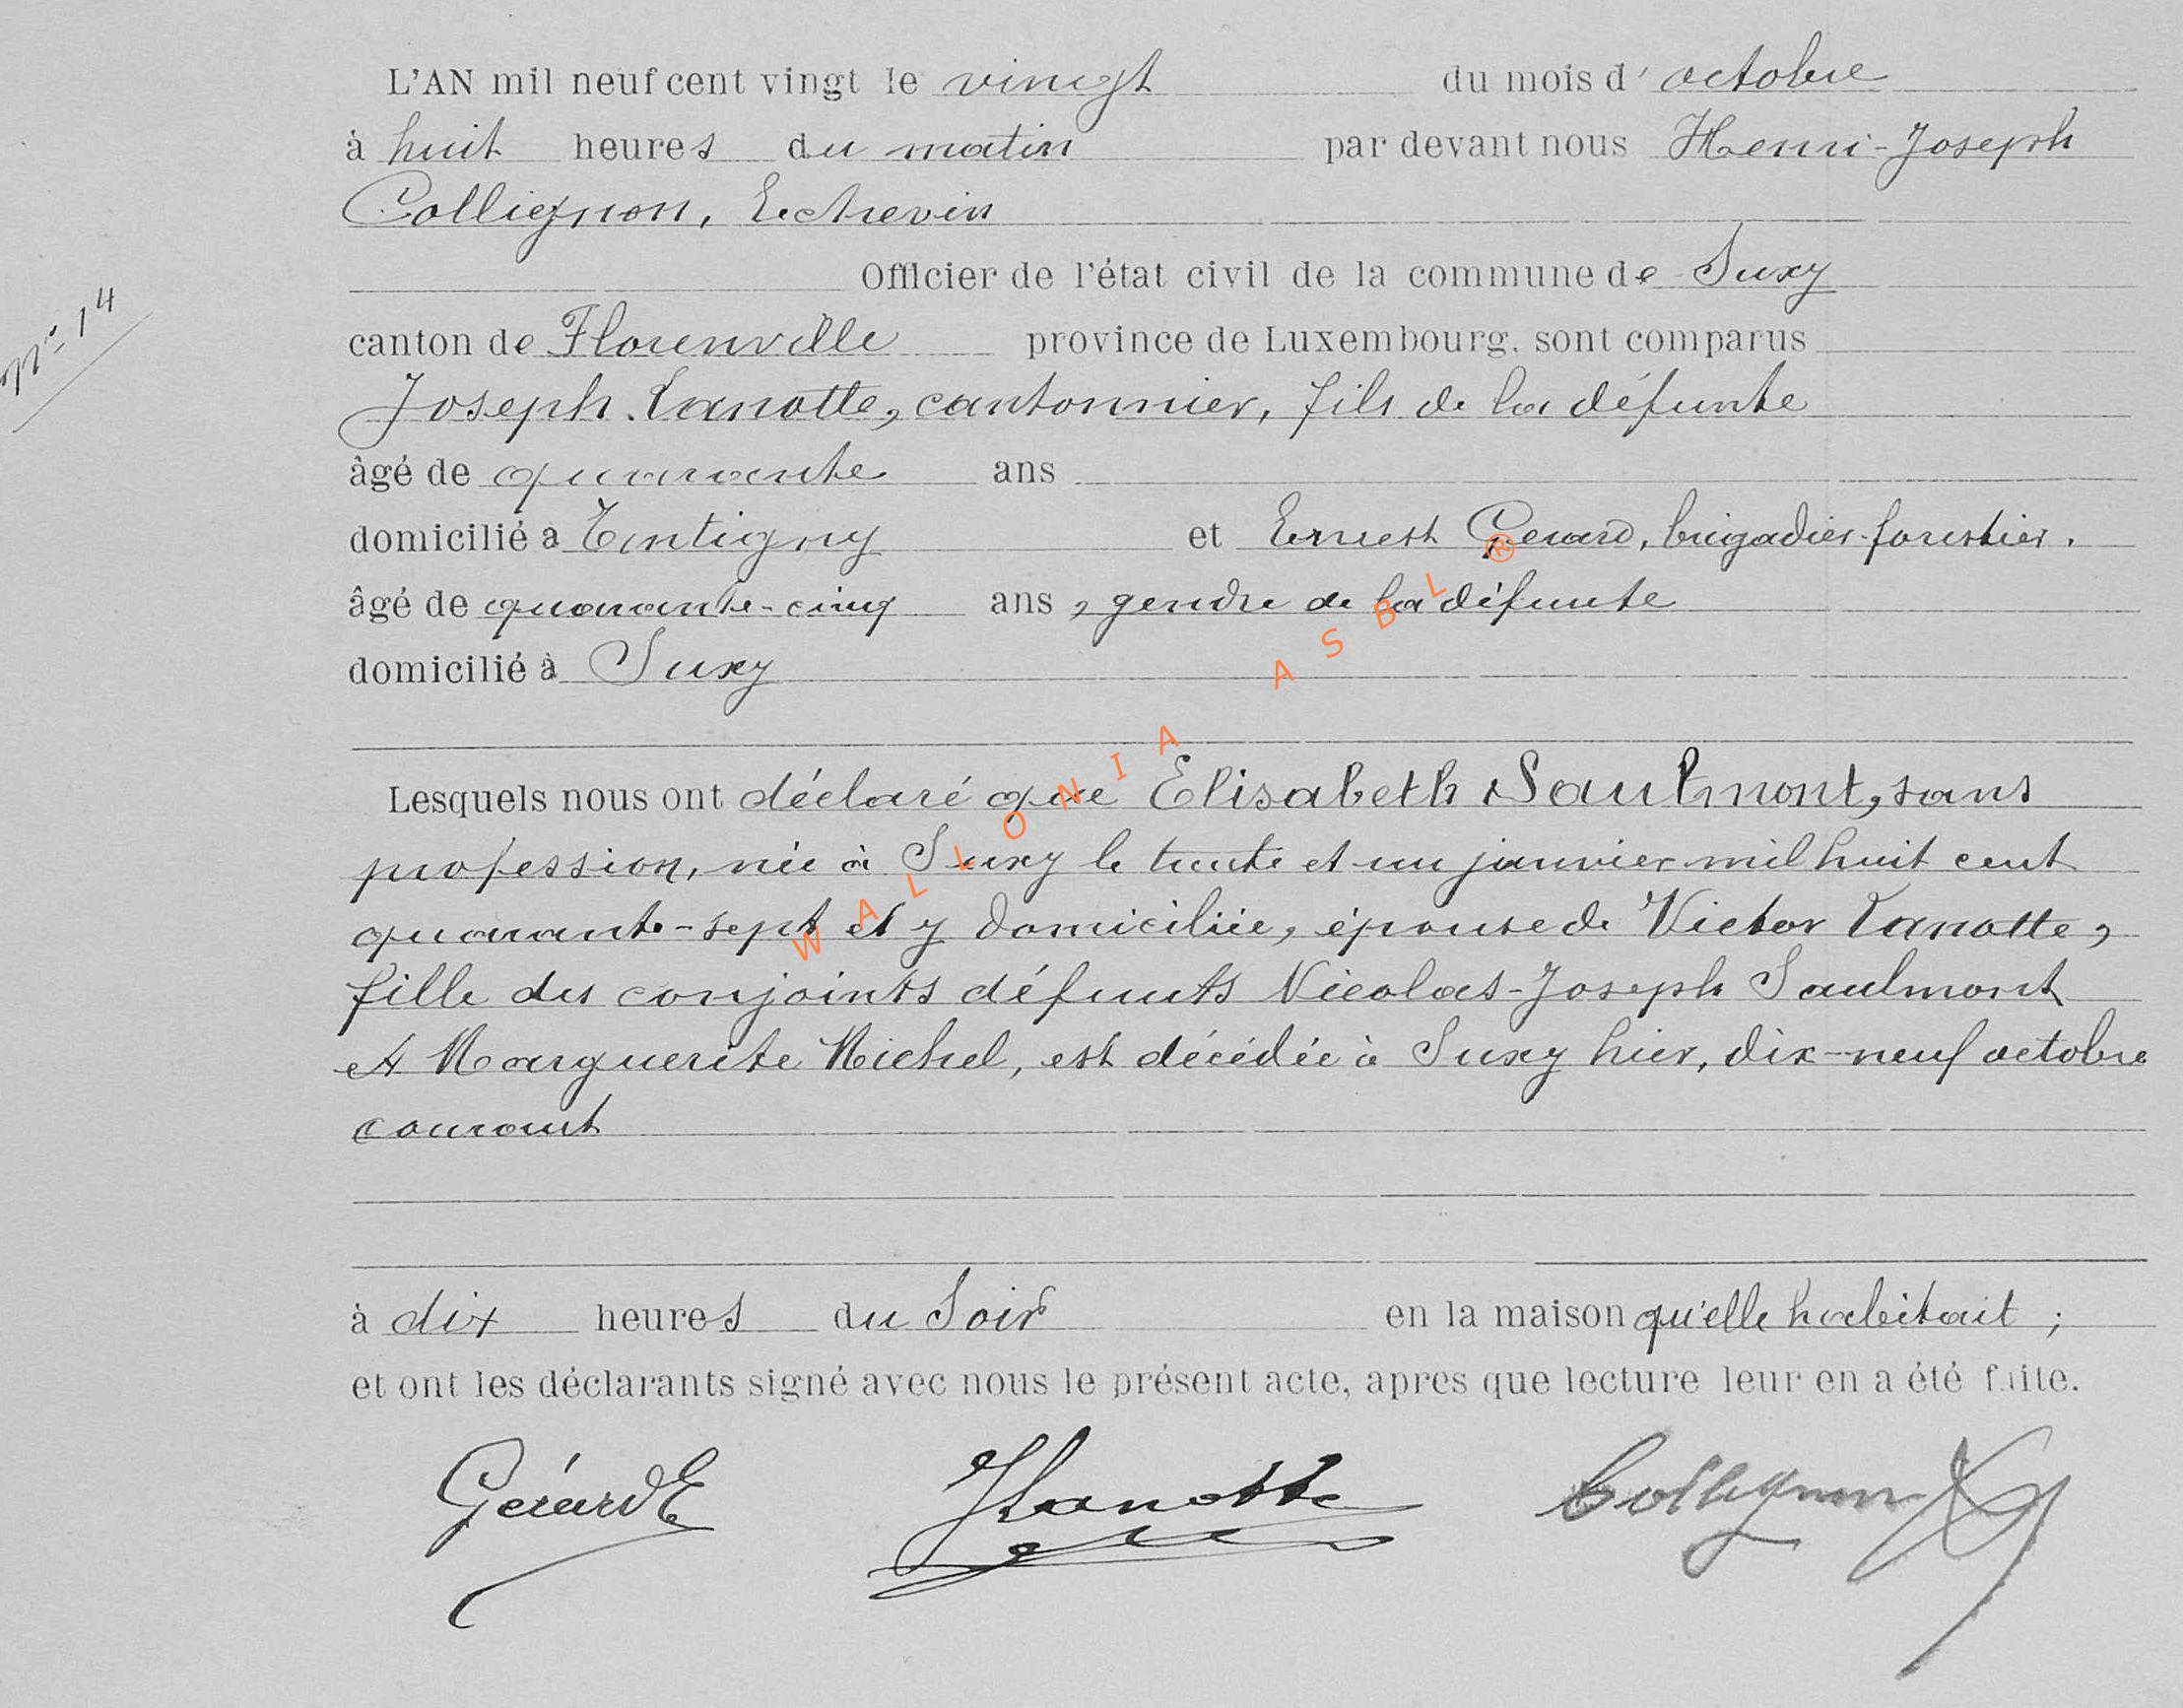 L'AN mil neuf cent vingt le vingt du mois d'octobre
à huit heures du matin par devant nous Henri-Joseph
Collignon, Echevin
Officier de l'état civil de la commune de Suxy
N° 14
canton de Florenville province de Luxembourg, sont comparus
Joseph Lanotte, cantonnier, fils de la défunte
âgé de quarante ans
domicilié à Tintigny et Ernest Gerard, brigadier-forestier.
âgé de quarante-cinq ans, gendre de la défunte
domicilié à Suxy
Lesquels nous ont déclaré que Elisabeth Saulmont, sans
profession, née à Suxy le trente et un janvier mil huit cent
quarante-sept et y domiciliée, épouse de Victor Lanotte,
fille des conjoints défunts Nicolas-Joseph Saulmont
et Marguerite Michel, est décédée à Suxy hier, dix-neuf octobre
courant
à dix heures du Soir en la maison qu'elle habitait ;
et ont les déclarants signé avec nous le présent acte, apres que lecture leur en a été faite.
Gérard E JLanotte Collignon
WALLONIA ASBL ®